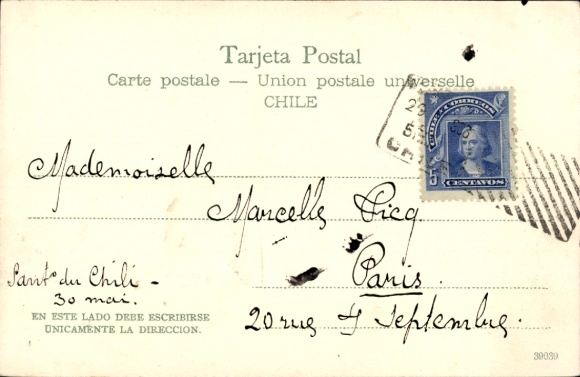 Tarjeta Postal
Carte postale — Union postale universelle
CHILE
CHILE CORREOS
5 CENTAVOS
Mademoiselle
Marcelle Picq
Paris.
20 rue 4 Septembre.
Santº du Chili —
30 mai.
EN ESTE LADO DEBE ESCRIBIRSE
UNICAMENTE LA DIRECCION.
39039